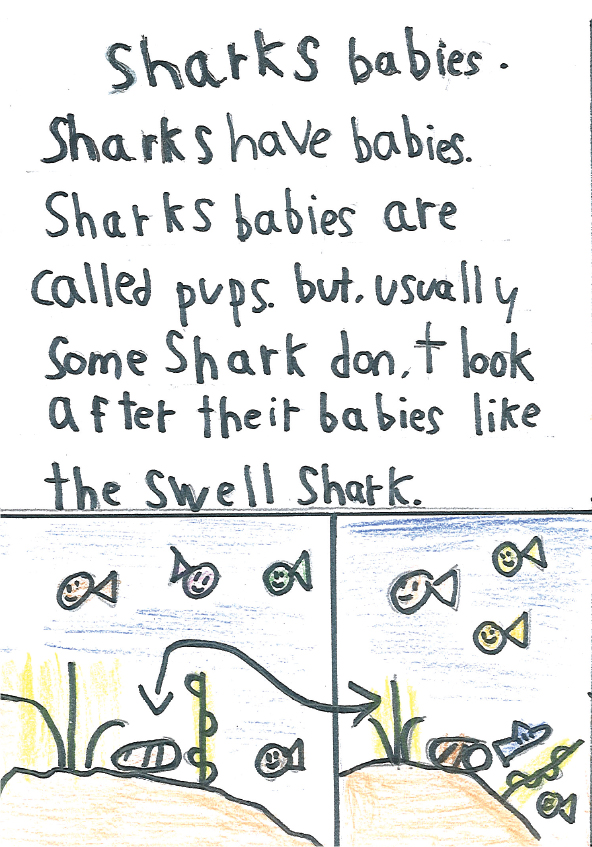 Sharks babies.
Sharks have babies.
Sharks babies are
called pups. but, usually
some Shark don,t look
after their babies like
the Swell Shark.